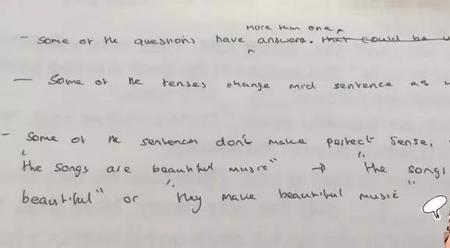 more than one
- Some of the questions have answers. that could be
- Some of the tenses change mid sentence as
- Some of the sentences don't make perfect sense.
"the songs are beautiful music" → "the songs
beautiful" or "they make beautiful music"